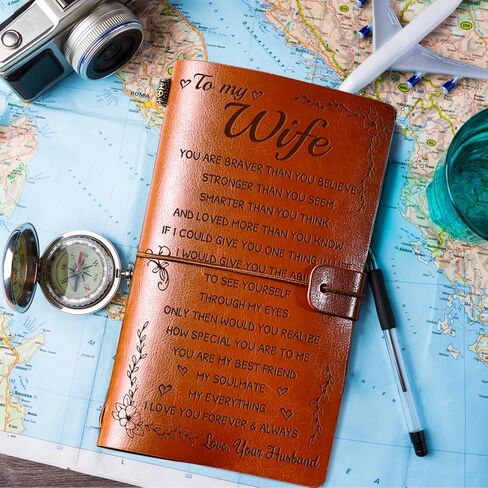 To my
Wife
YOU ARE BRAVER THAN YOU BELIEVE
STRONGER THAN YOU SEEM
SMARTER THAN YOU THINK
AND LOVED MORE THAN YOU KNOW
IF I COULD GIVE YOU ONE THING IN
I WOULD GIVE YOU THE
TO SEE YOURSELF
THROUGH MY EYES
ONLY THEN WOULD YOU REALIZE
HOW SPECIAL YOU ARE TO ME
YOU ARE MY BEST FRIEND
MY SOULMATE
MY EVERYTHING
I LOVE YOU FOREVER & ALWAYS
Love, Your Husband
ROMA